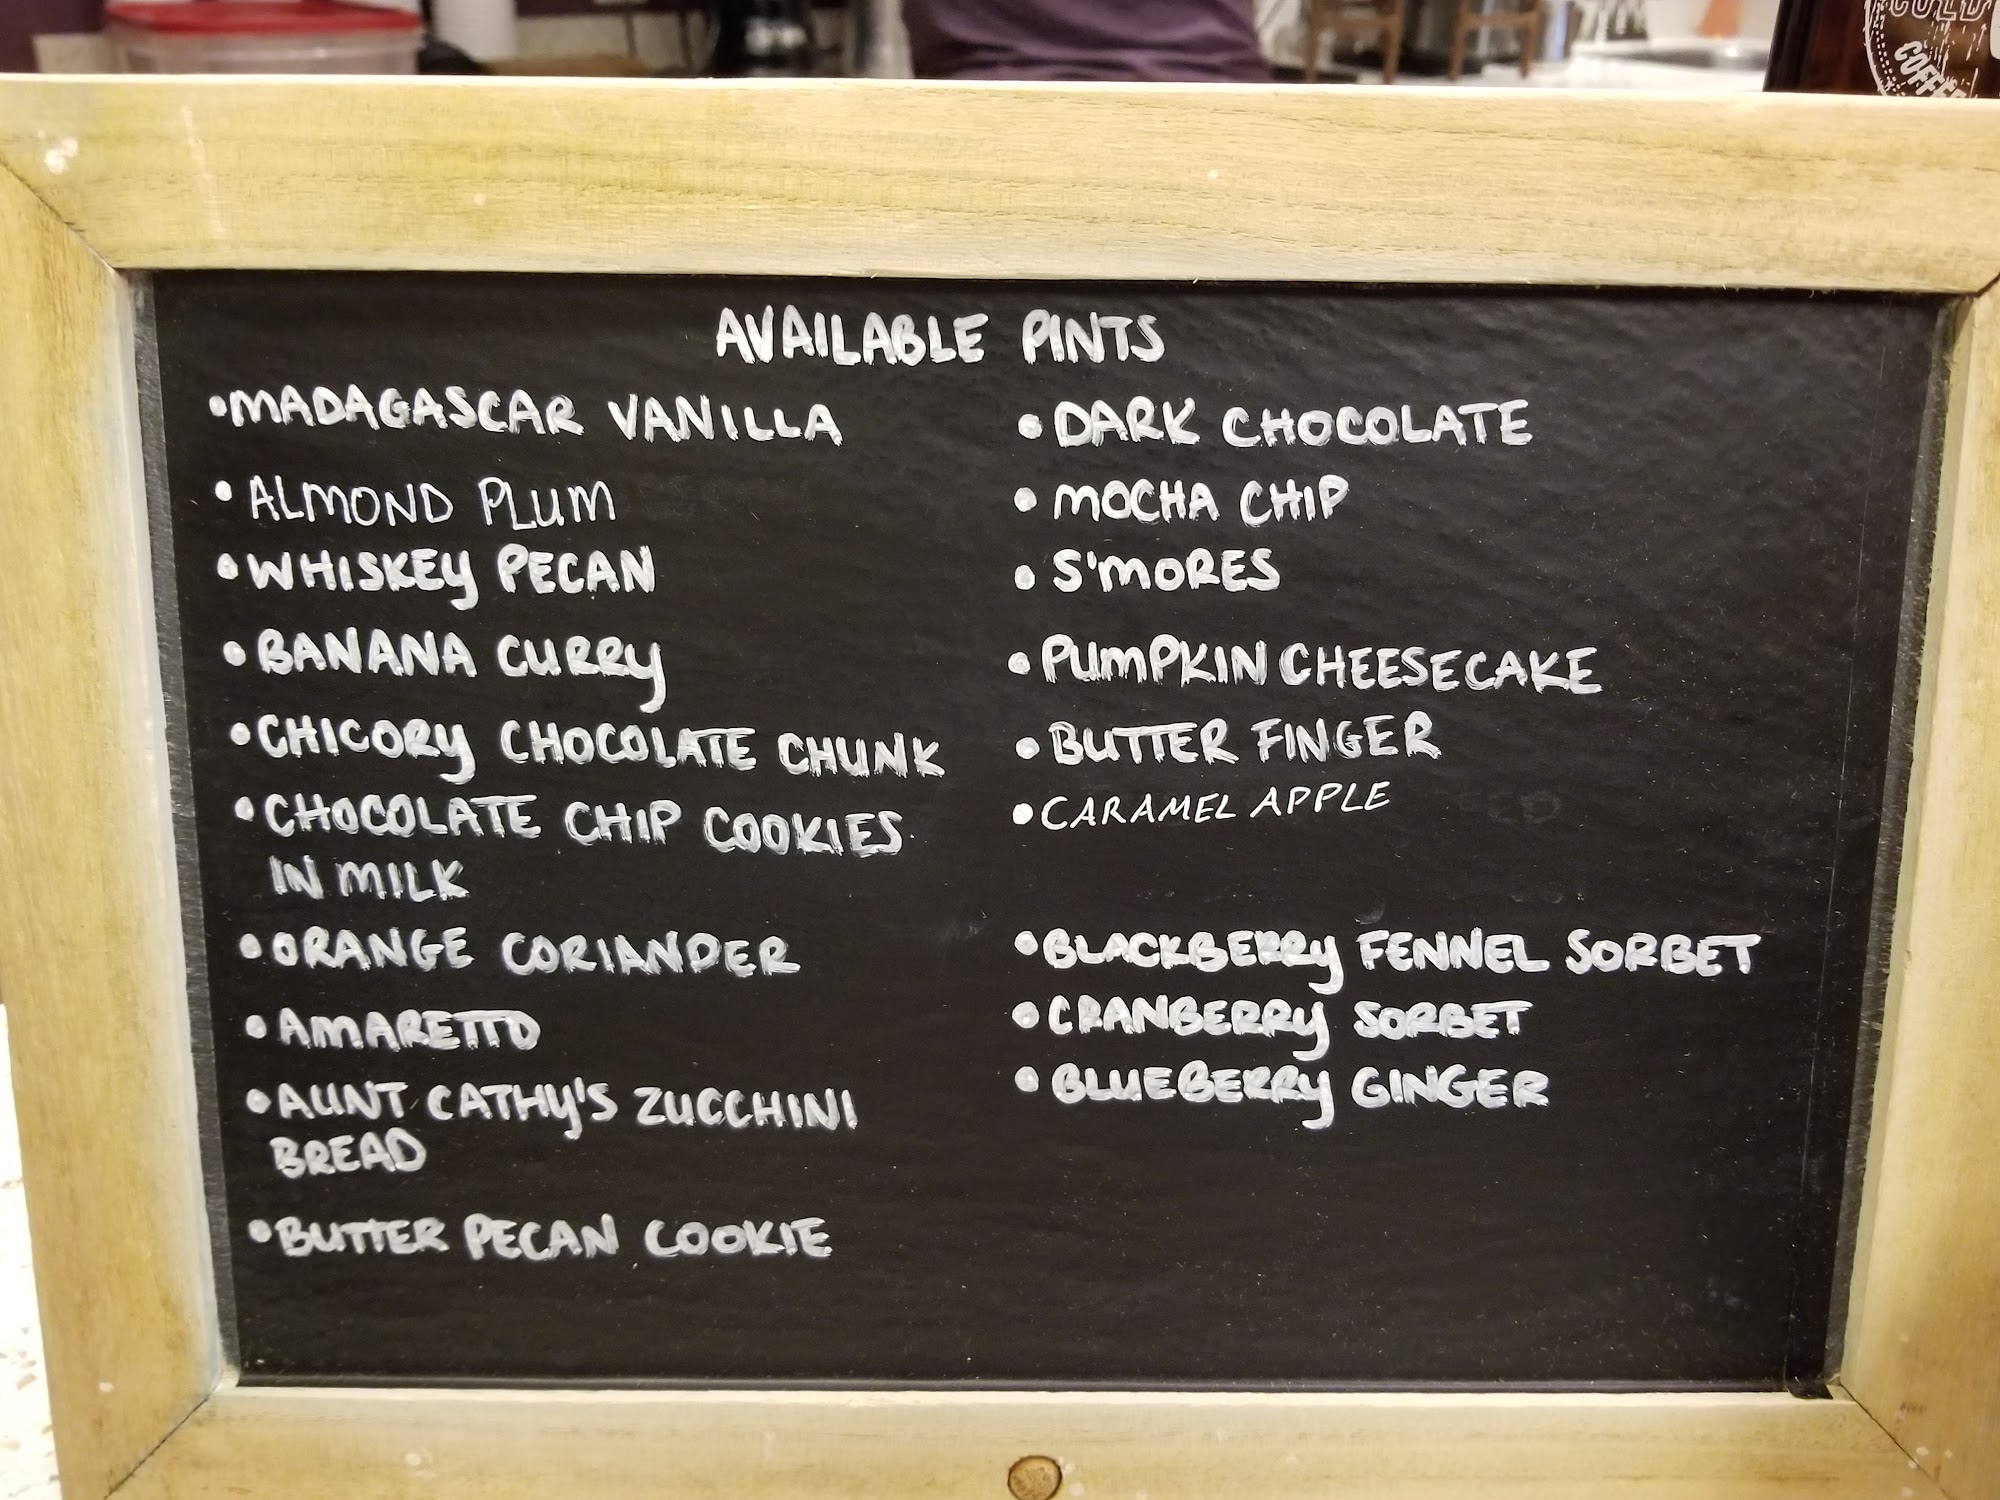 COLD
COFFEE
AVAILABLE PINTS
•MADAGASCAR VANILLA
• ALMOND PLUM
• WHISKEY PECAN
• BANANA CURRY
• CHICORY CHOCOLATE CHUNK
• CHOCOLATE CHIP COOKIES
IN MILK
• ORANGE CORIANDER
• AMARETTO
• AUNT CATHY'S ZUCCHINI
BREAD
• BUTTER PECAN COOKIE
• DARK CHOCOLATE
• MOCHA CHIP
• S'MORES
• PUMPKIN CHEESECAKE
• BUTTER FINGER
• CARAMEL APPLE
• BLACKBERRY FENNEL SORBET
• CRANBERRY SORBET
• BLUEBERRY GINGER